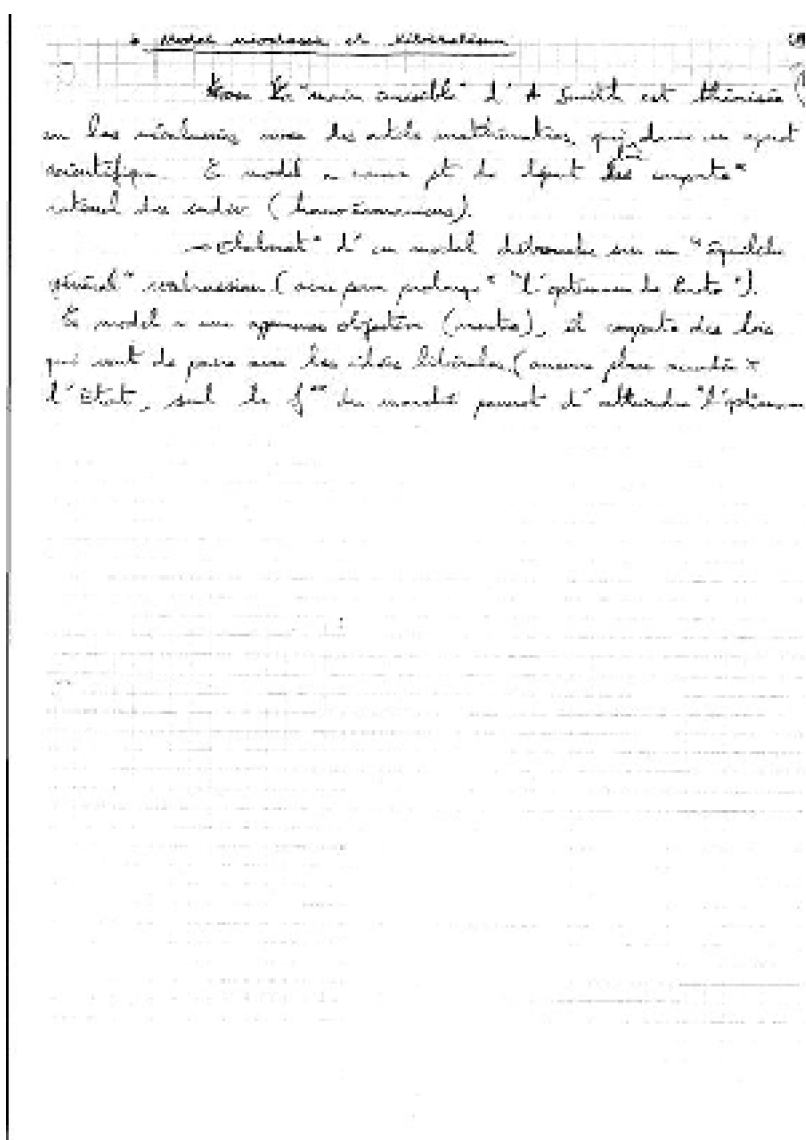 Model néoclassic et libéralisme
La "main invisible" d' A Smith est théorisée
les néoclassiq avec des outils mathématiq, qui donne un aspect
scientifique. Ce model a comme pt de départ les comporte
rationel des indiv (homo économicus).
→ élaborat° d' un model débouche sur un "équilibre
général" walrassien ( "l'optimum de Pareto").
Ce model a une apparence objective (neutre), il comporte des lois
qui vont de paire avec les idées libérales (aucune place accordée à
l'état, seul le f du marché permet d' atteindre "l'optimum